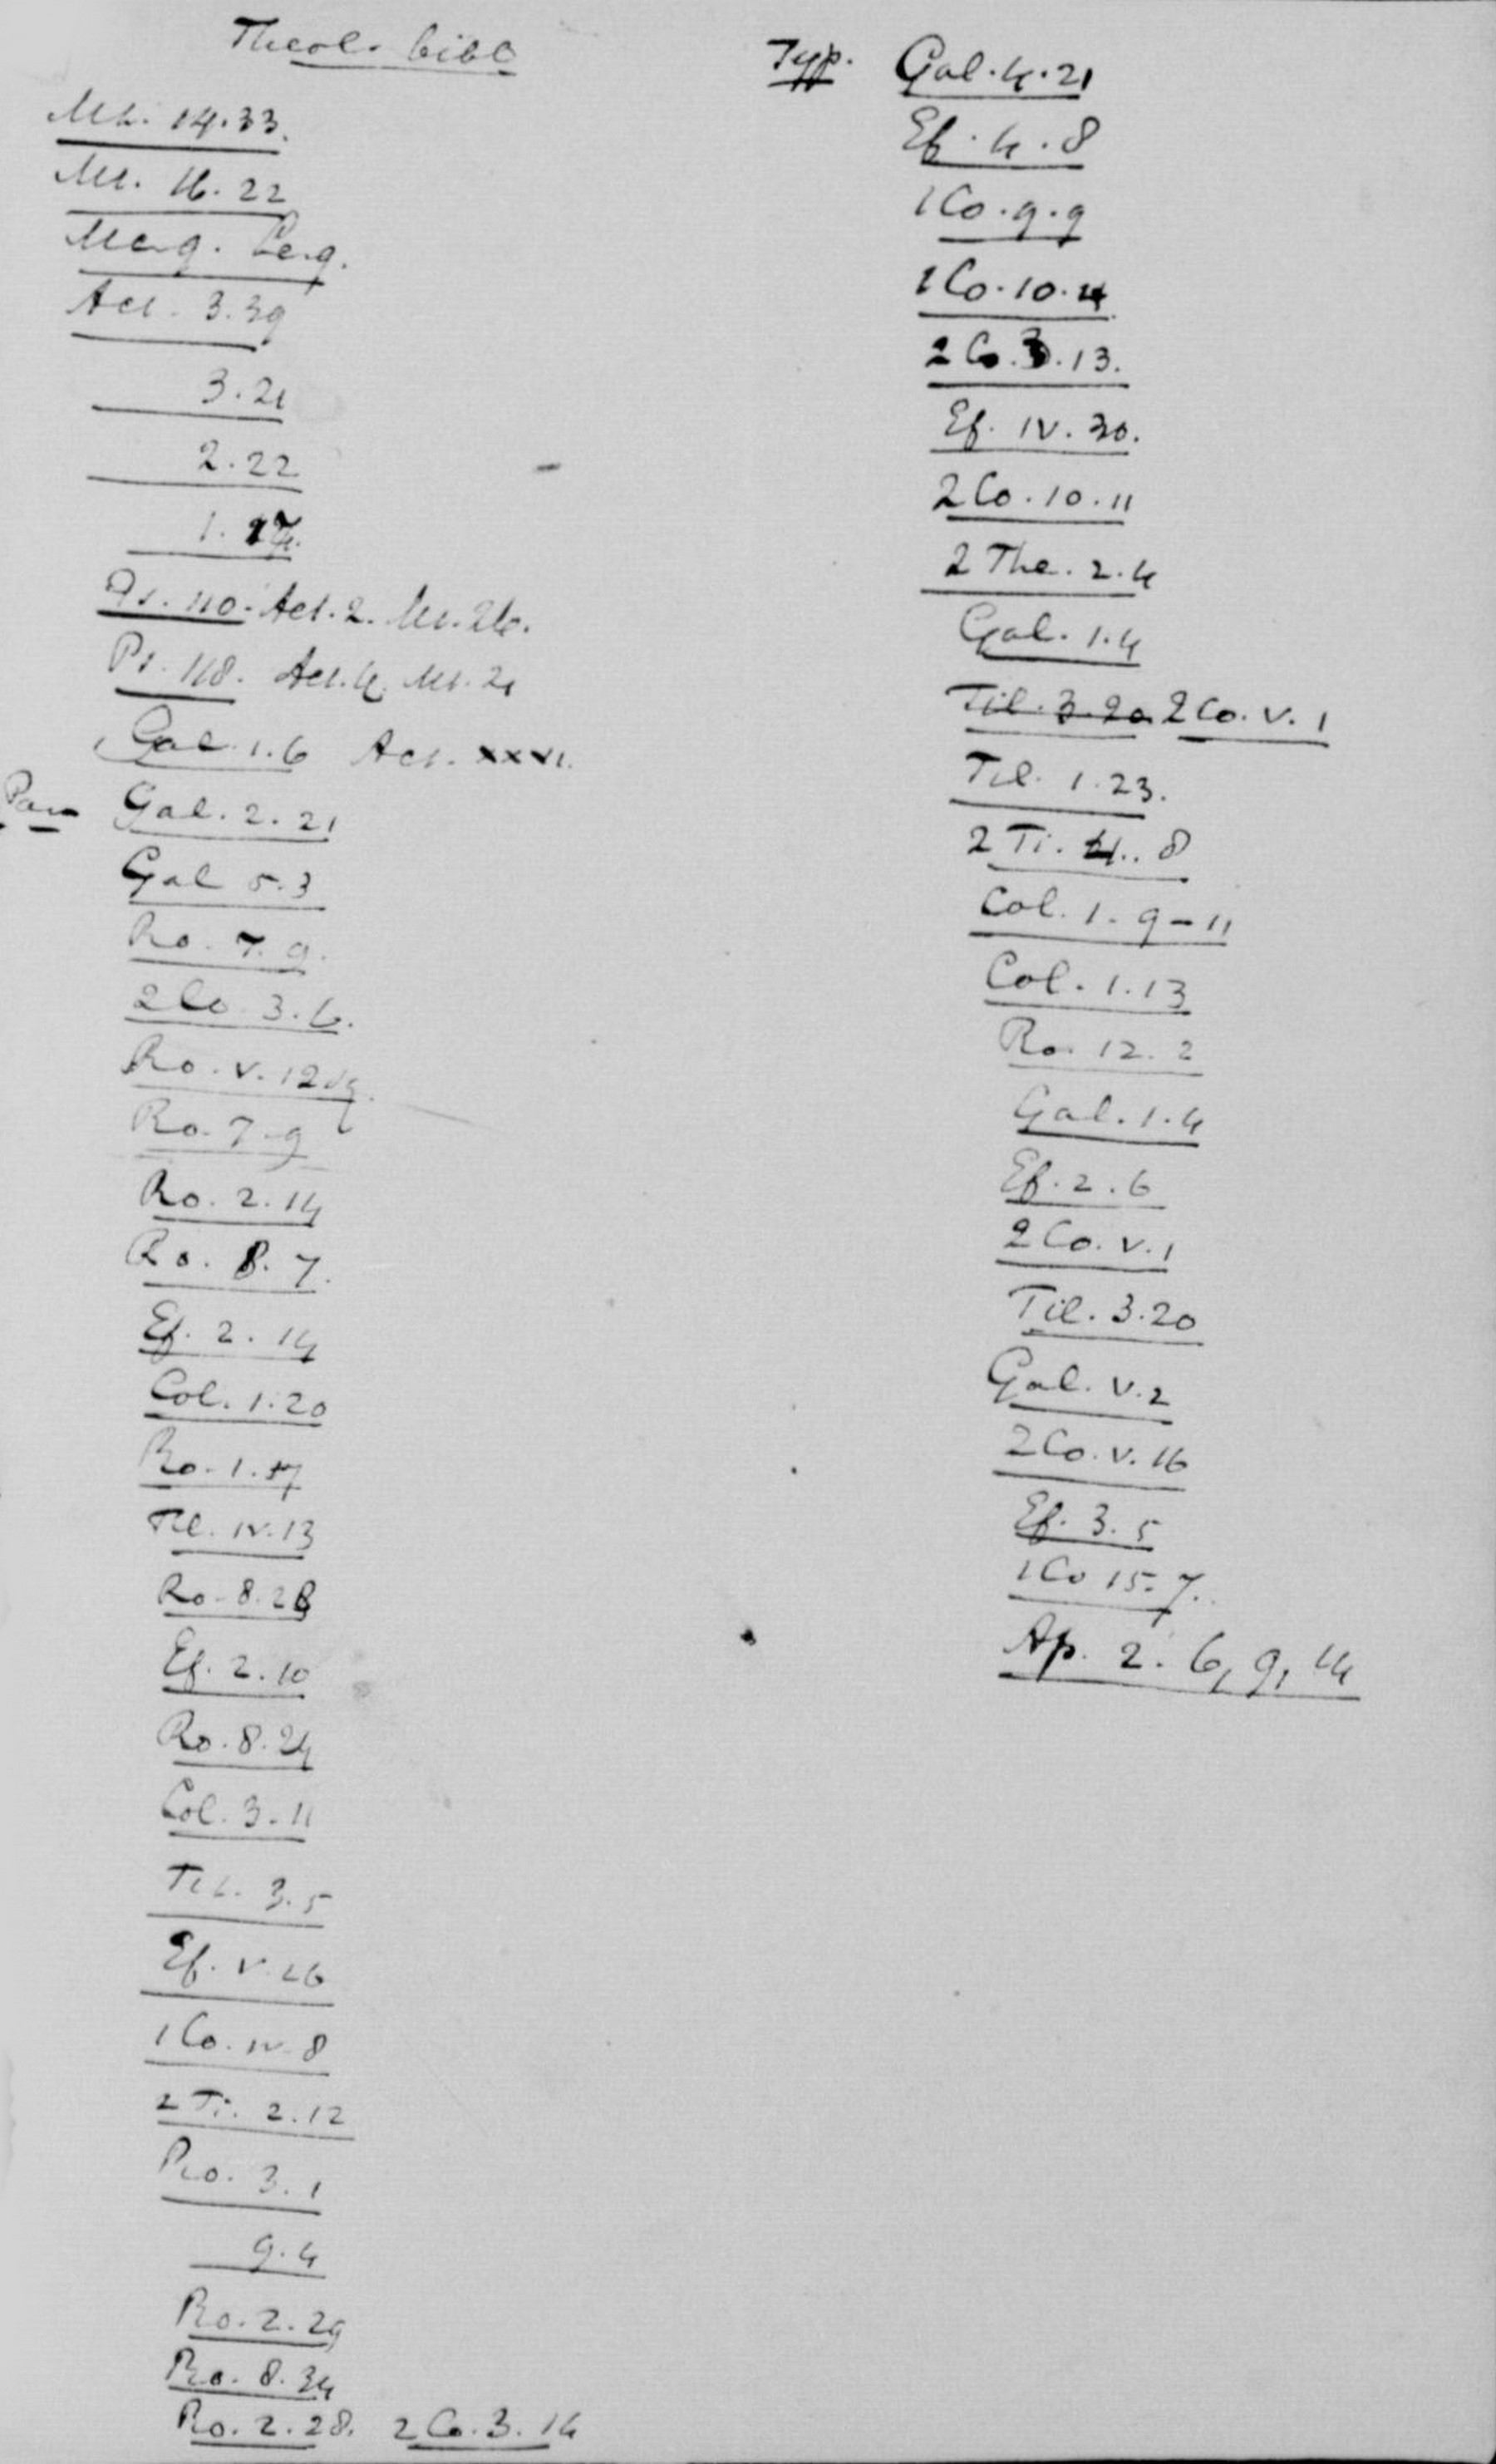 Theol. bibl
Mt. 14.33.
Mt. 16.22
Act. 3.39
3.21
2.22
Ps. 110. Act. 2. Mt. 26.
Ps. 118. Act. 4. Mt. 21
Gal. 1.6 Act. xxvi.
Gal. 2.21
Gal 5.3
Ro. 7.9.
2 Co. 3.6.
Ro. v. 12 sq.
Ro. 7.9
Ro. 2.14
Ro. 8.7.
Ef. 2.14
Col. 1.20
Ro. 1.17
Fil. iv. 13
Ro. 8.28
Ef. 2.10
Ro. 8.24
Col. 3.11
Tit. 3.5
Ef. v. 26
1 Co. iv. 8
2 Ti. 2.12
Ro. 3.1
9.4
Ro. 2.29
Ro. 8.34
Ro. 2.28. 2 Co. 3.14
Typ. Gal. 4.21
Ef. 4.8
1 Co. 9.9
1 Co. 10.4
2 Co. 3.13.
Ef. IV. 30.
2 Co. 10.11
2 The. 2.4
Gal. 1.4
Fil. 3.20 2 Co. v. 1
Fil. 1.23.
2 Ti. 4. 8
Col. 1. 9-11
Col. 1.13
Ro. 12.2
Gal. 1.4
Ef. 2.6
2 Co. v. 1
Fil. 3.20
Gal. v. 2
2 Co. v. 16
Ef. 3.5
1 Co 15.7.
Ap. 2. 6, 9, 14